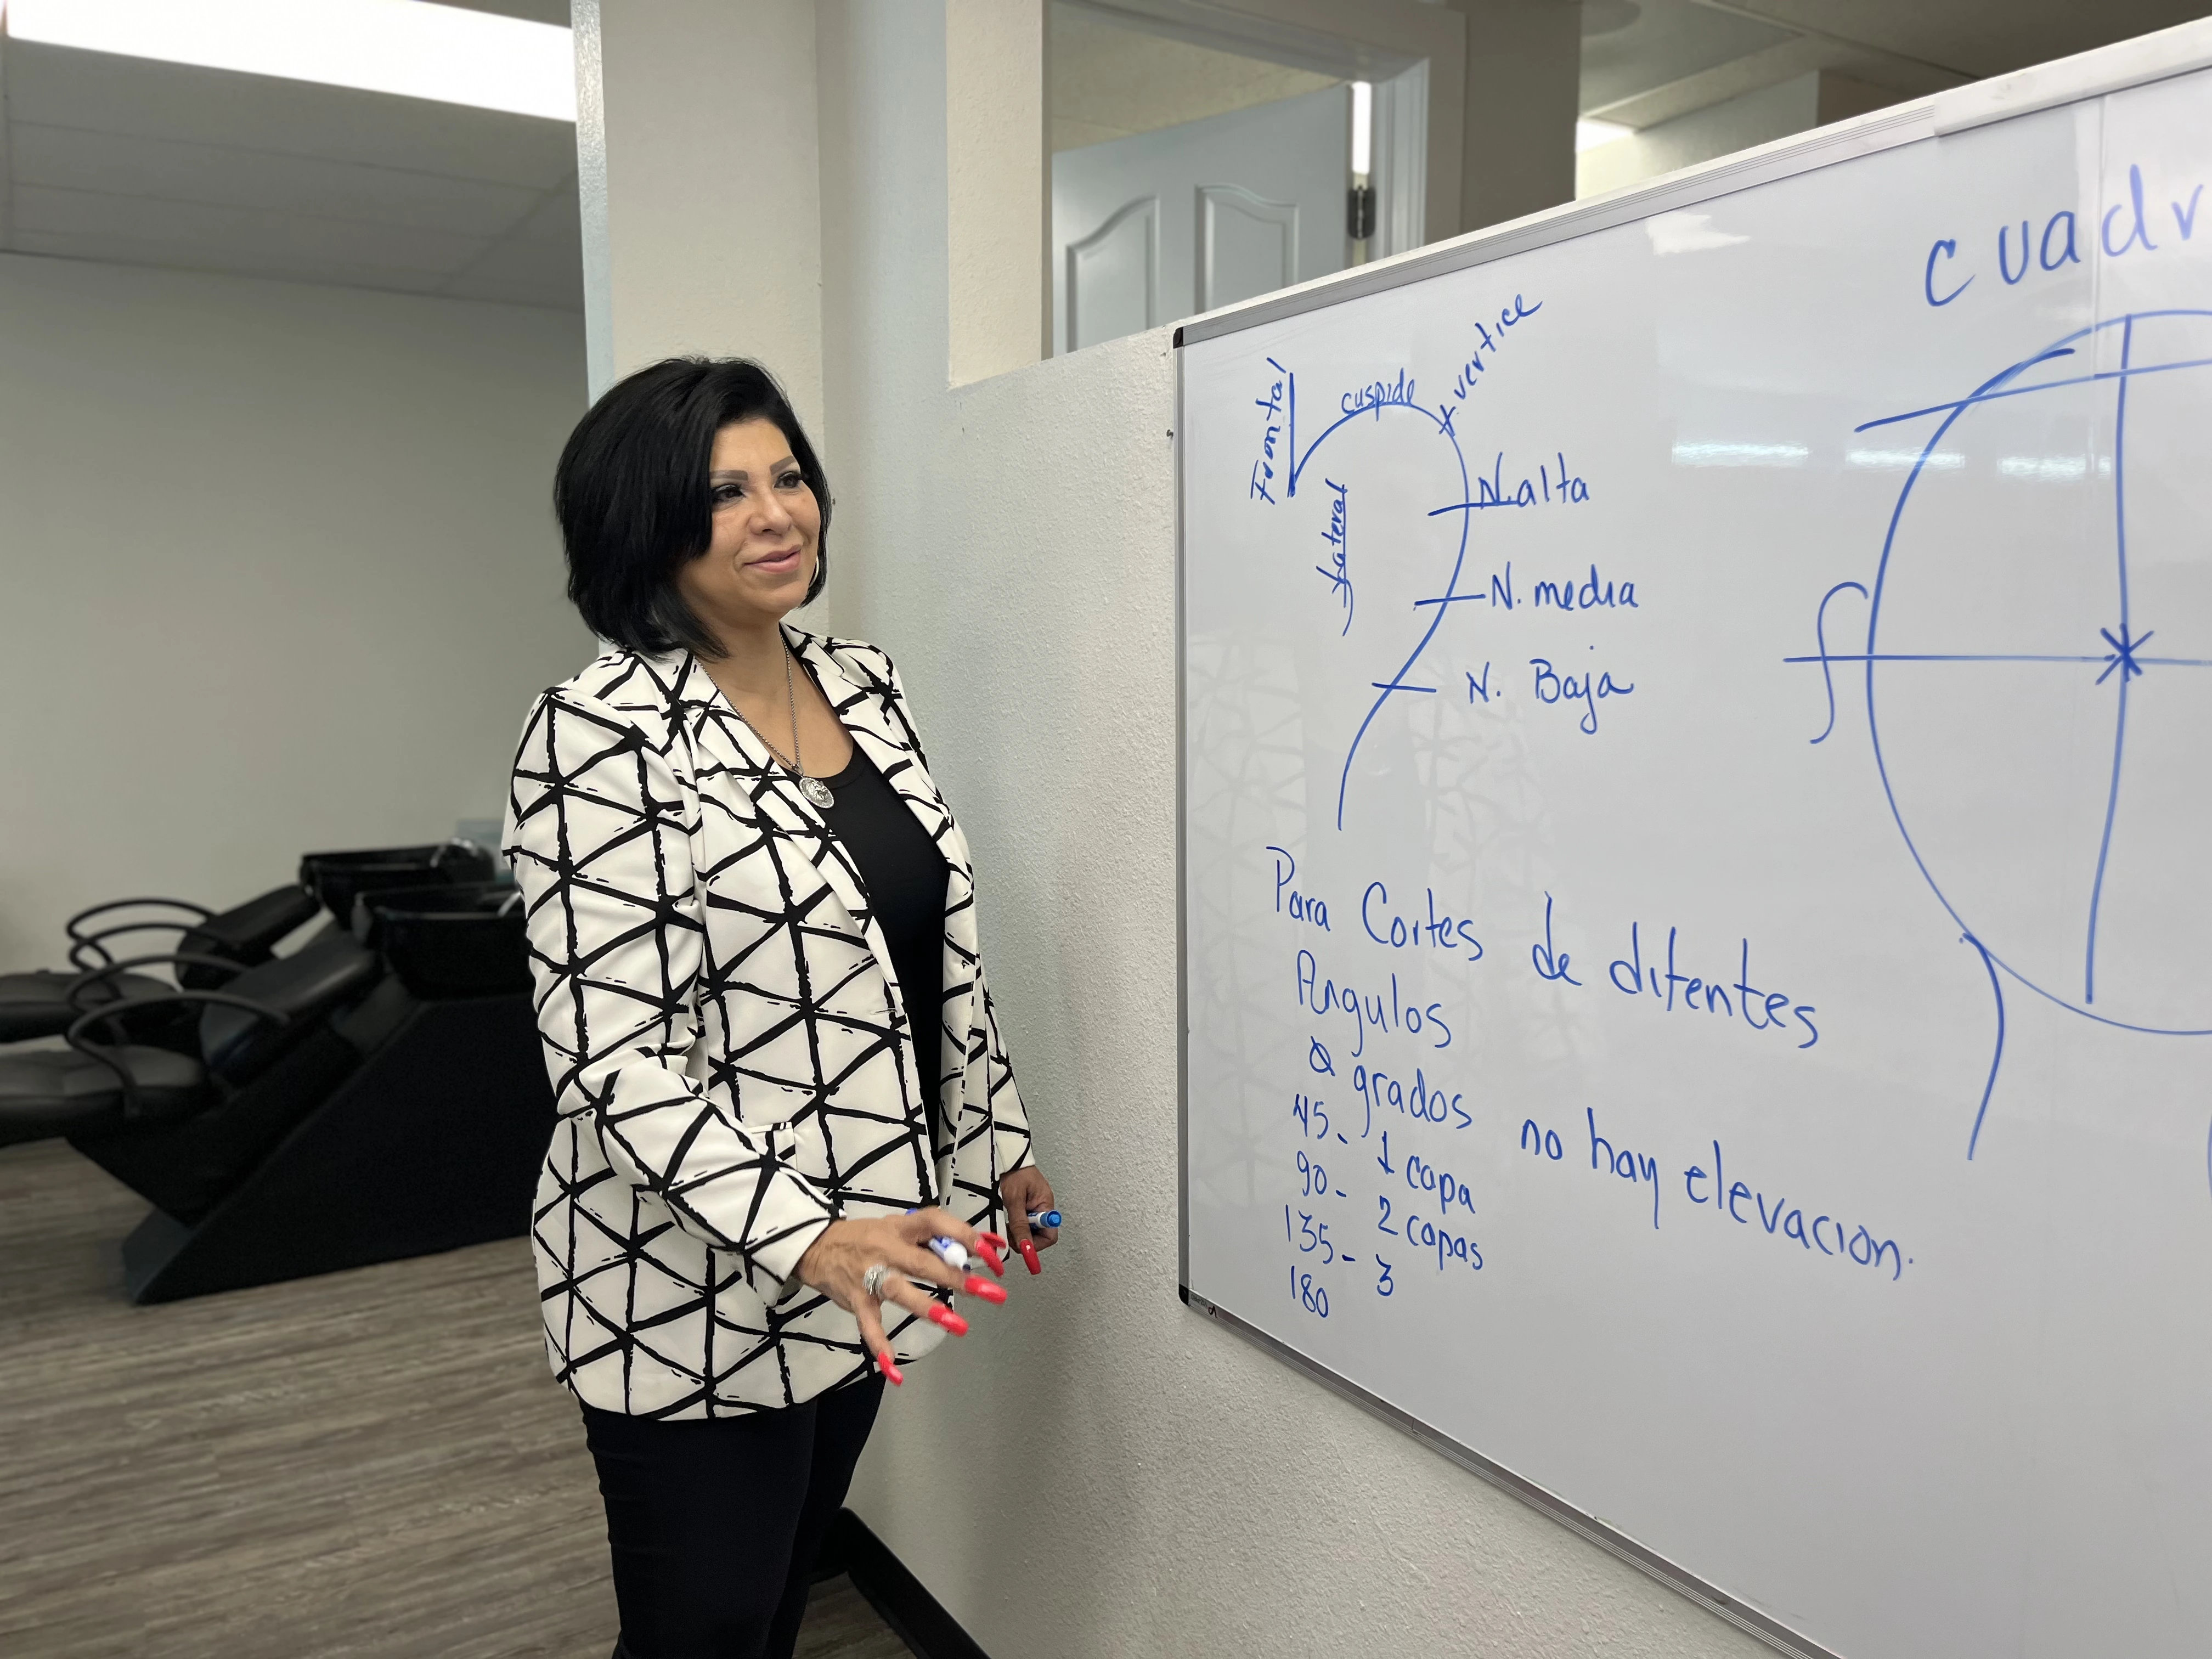 Frontal
cuspide
vertice
Lateral
N. alta
N. media
N. Baja
Para Cortes de difentes
Angulos
0 grados no hay elevacion.
45- 1 capa
90- 2 capas
135- 3
180
cuadr